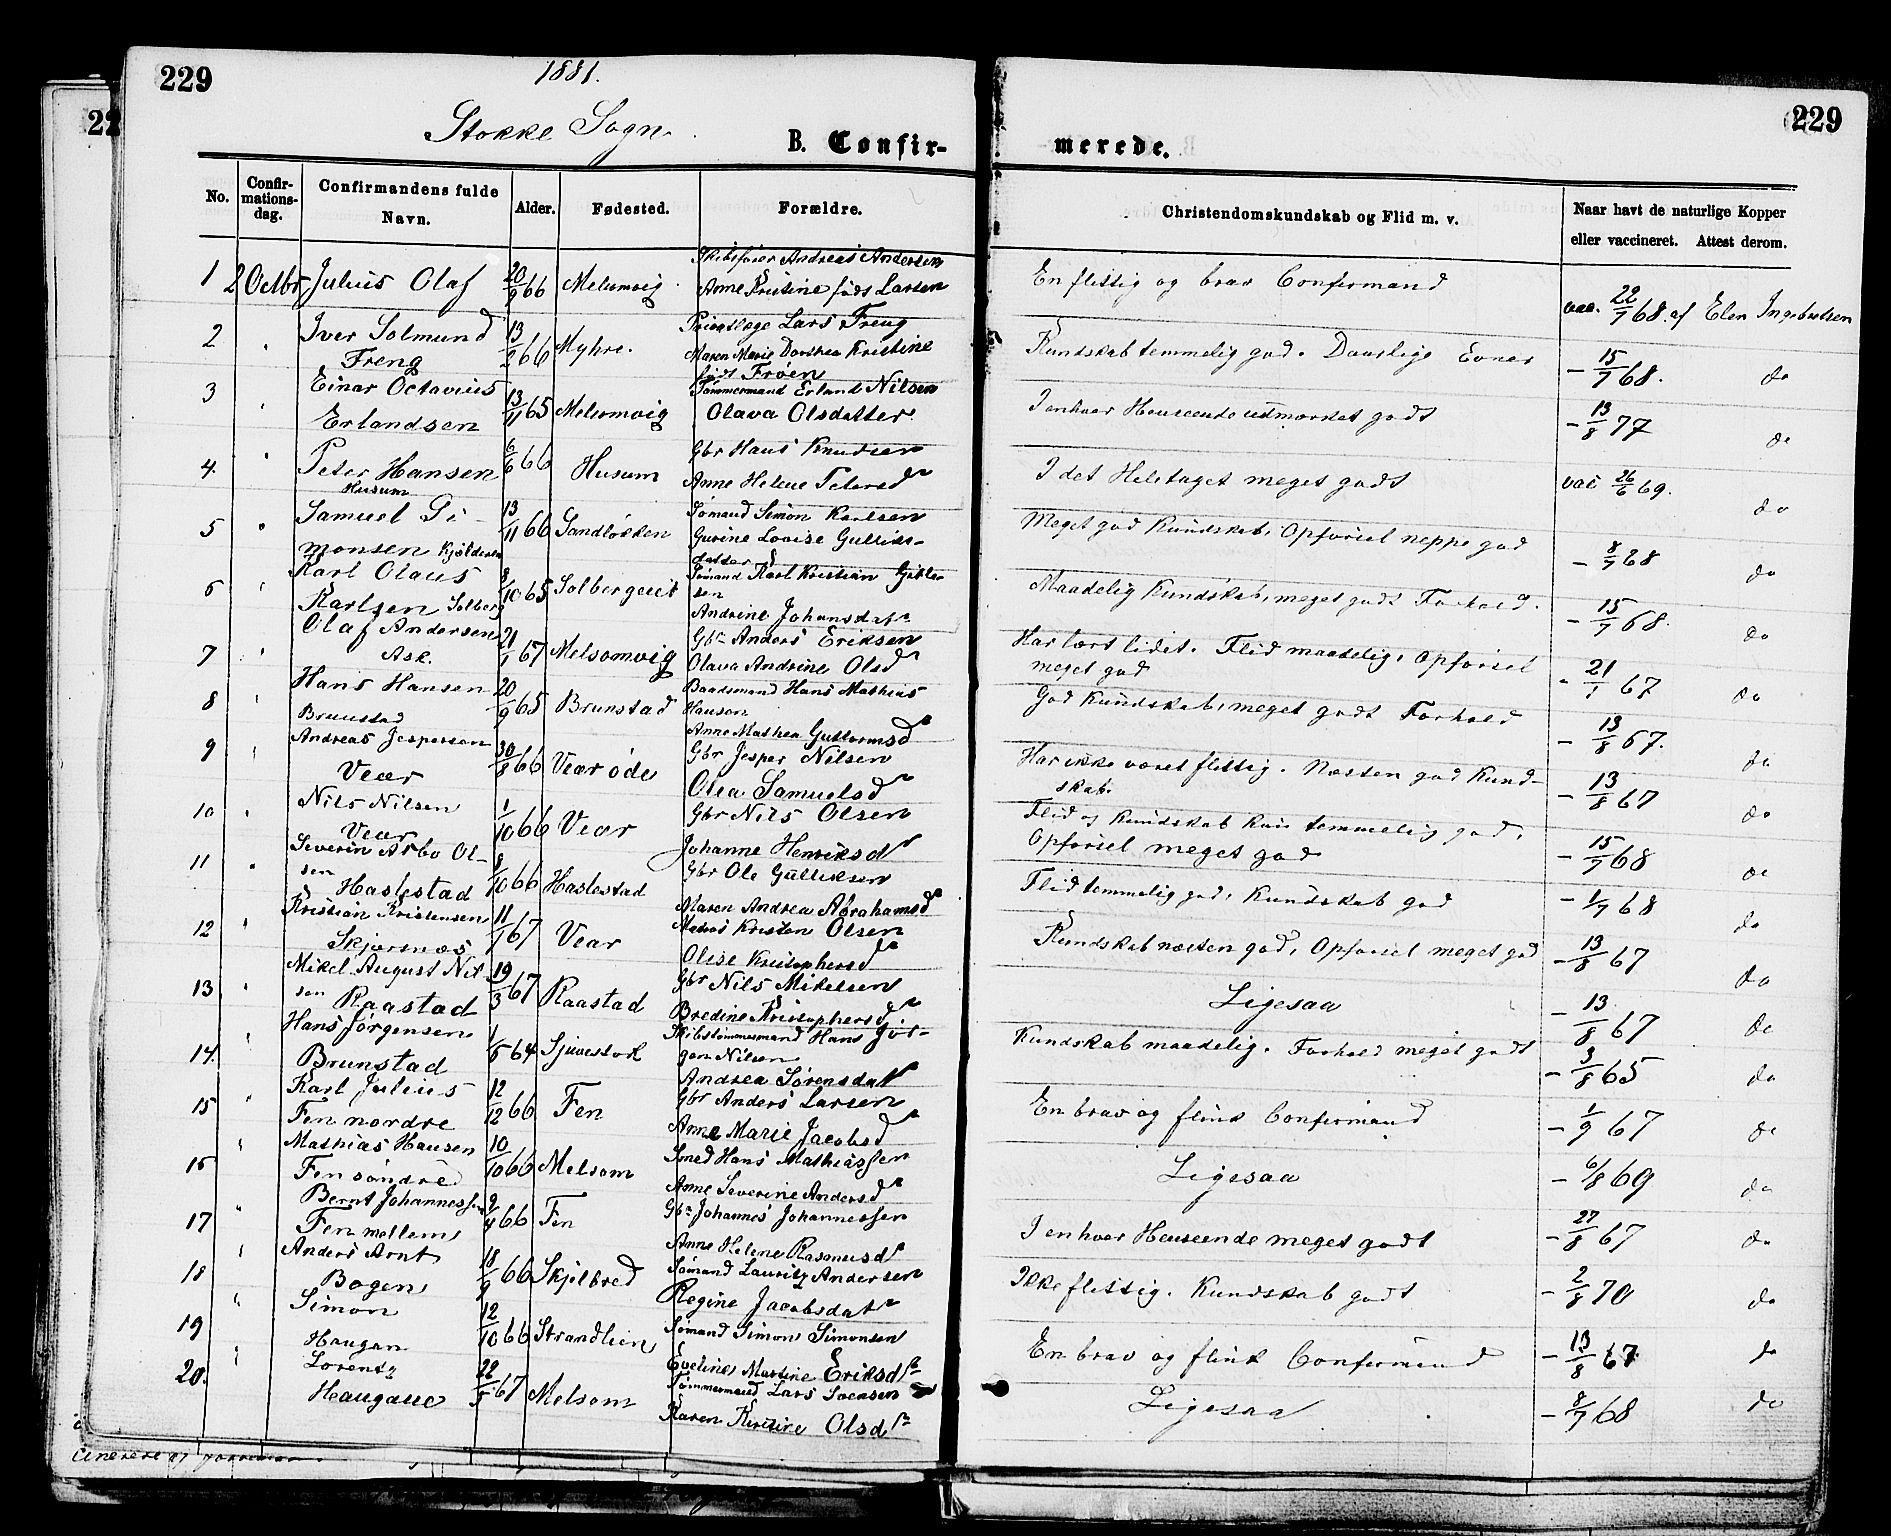 229
1881.
229
22
Stokke Sogn.
B. Confir-
merede.
No.
Confir-
mations-
dag.
Confirmandens fulde
Navn.
Alder.
Fødested.
Forældre.
Christendomskundskab og Flid m. v.
Naar havt de naturlige Kopper
eller vaccineret. Attest derom.
1 2 Octbr Julius Olaf 20/9 66 Melsomvig
Skibsfører Andreas Andersen
Anne Kristine født Larsen
En flittig og brav Confirmand
vac. 22/7 68. af Elen Ingebretsen
2 Iver Solmund
Freng
13/2 66 Myhre.
Lars Freng
Maren Marie Dorthea Kristine
født Frøen
Kundskab temmelig god. Daarlige Evner
- 15/7 68. do
3 Einar Octavius
Erlandsen
13/11 65 Melsomvig
Tømmermand Erland Nilsen
Olava Olsdatter
I enhver Henseende udmærket godt
- 13/8 77 do
4. Peter Hansen
Husum
6/6 66 Husum
Gbr Hans Knudsen
Anne Helene Petersd
I det Heletaget meget godt
vac 26/6 69. do
5 Samuel Si-
monsen Kjølderen
13/11 66 Sandløkken
Sømand Simon Karlsen
Gurine Lovise Gulliks-
datter
Meget god Kundskab, Opførsel neppe god
- 8/7 68 do
6 Karl Olaus
Karlsen Solberg
8/10 65 Solbergeiet
Sømand Karl Kristian
sen
Andrine Johansdatr
Maadelig Kundskab, meget godt Forhold.
- 15/7 68. do
7 Olaf Andersen
Ask.
21/1 67 Melsomvig
Gbr Anders Eriksen
Olava Andrine Olsd
Har lært lidet. Flid maadelig, Opførsel
meget god
- 21/1 67 do
8 Hans Hansen
Brunstad
20/9 65 Brunstad
Baadsmand Hans Mathias
Hansen
Anne Mathea Guttormsd
God Kundskab, meget godt Forhold
- 13/8 67. do
9 Andreas Jespersen
Vear
30/8 66 Vear øde
Gbr Jesper Nilsen
Olea Samuelsd
Har ikke været flittig. Næsten god Kund-
skab.
- 13/8 67 do
10 Nils Nilsen
Vear
1/10 66 Vear
Gbr Nils Olsen
Johanne Henriksd
Flid og Kundskab kun temmelig god,
Opførsel meget god
- 15/7 68 do
11 Severin Arbo Ol-
sen
Haslestad
8/10 66 Haslestad
Gbr Ole Gulliksen
Maren Andrea Abrahamsd
Flid temmelig god, Kundskab god
- 1/7 68 do
12 Kristian Kristensen
Skjærsnæs
11/1 67 Vear
Kristen Olsen
Olise Kristophersd
Kundskab næsten god, Opførsel meget god
- 13/8 67 do
13 Mikel August Nil-
sen
Raastad
19/3 67 Raastad
Gbr Nils Mikelsen
Bredine Kristophersd
Ligesaa
- 13/8 67 do
14. Hans Jørgensen
Brunstad
1/5 64 Sjuestok
Skibstømmermand Hans Jør-
gen Nilsen
Andrea Sørensdatr
Kundskab maadelig. Forhold meget godt
- 3/8 65 do
15 Karl Julius
Fen nordre
12/12 66 Fen
Gbr Anders Larsen
Anne Marie Jacobsd
En brav og flink Confirmand
- 1/9 67 do
16 Mathias Hansen
Fen søndre
10/10 66 Melsom
Smed Hans Mathiassen
Anne Severine Andersd
Ligesaa
- 6/8 69 do
17 Bernt Johannessen
Fen mellem
9/4 66 Fen
Gbr Johannes Johannessen
Anne Helene Rasmusdr
I enhver Henseende meget godt
- 27/8 67 do
18 Anders Arnt
Bogen
18/9 66 Skjelbred
Sømand Lauritz Andersen
Regine Jacobsdatr
Ikke flittig. Kundskab godt
- 2/8 70 do
19 Simon
Haugan
12/10 66 Strandlien
Sømand Simon Simonsen
Eveline Martine Eriksdr
En brav og flink Confirmand
- 13/8 67 do
20. Lorentz
Haugane
22/5 67 Melsom
Tømmermand Lars Svensen
Karen Kristine Olsdr
Ligesaa
- 8/7 68 do